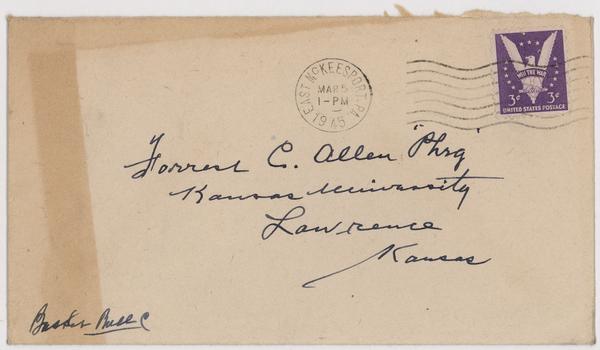 EAST McKEESPORT, PA.
MAR 5
1-PM
1945
WIN THE WAR
3¢ 3¢
UNITED STATES POSTAGE
Forrest C. Allen "Phog"
Kansas University
Lawrence
Kansas
Basket Ball C